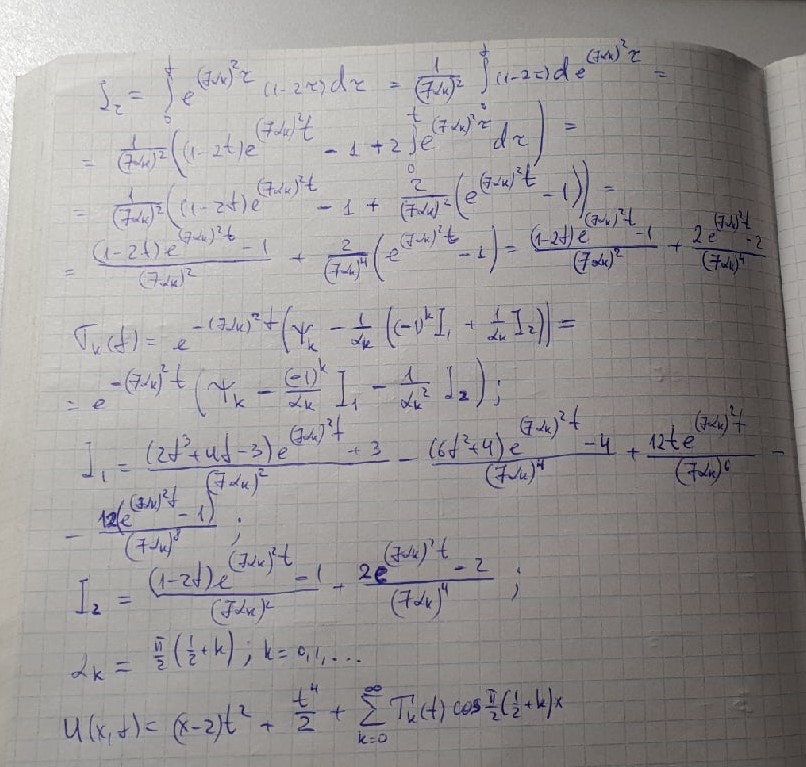 I₂ = ∫₀ᵗ e^{(7αₖ)²τ} (1-2τ)dτ = 1/(7αₖ)² ∫₀ᵗ (1-2τ) d e^{(7αₖ)²τ} =
= 1/(7αₖ)² ((1-2t)e^{(7αₖ)²t} - 1 + 2∫₀ᵗ e^{(7αₖ)²τ} dτ) =
= 1/(7αₖ)² ((1-2t)e^{(7αₖ)²t} - 1 + 2/(7αₖ)² (e^{(7αₖ)²t} - 1)) =
= ((1-2t)e^{(7αₖ)²t} - 1)/(7αₖ)² + 2/(7αₖ)⁴ (e^{(7αₖ)²t} - 1) = ((1-2t)e^{(7αₖ)²t} - 1)/(7αₖ)² + (2e^{(7αₖ)²t} - 2)/(7αₖ)⁴
Tₖ(t) = e^{-(7αₖ)²t} (ψₖ - 1/αₖ ((-1)ᵏI₁ + 1/αₖ I₂)) =
= e^{-(7αₖ)²t} (ψₖ - (-1)ᵏ/αₖ I₁ - 1/αₖ² I₂);
I₁ = ((2t³+4t-3)e^{(7αₖ)²t} + 3)/(7αₖ)² - ((6t²+4)e^{(7αₖ)²t} - 4)/(7αₖ)⁴ + 12te^{(7αₖ)²t}/(7αₖ)⁶ -
- 12(e^{(7αₖ)²t} - 1)/(7αₖ)⁸ ;
I₂ = ((1-2t)e^{(7αₖ)²t} - 1)/(7αₖ)² + (2e^{(7αₖ)²t} - 2)/(7αₖ)⁴ ;
αₖ = π/2 (1/2 + k) ; k = 0,1,...
U(x,t) = (x-2)t² + t⁴/2 + ∑_{k=0}^{∞} Tₖ(t) cos π/2 (1/2 + k)x